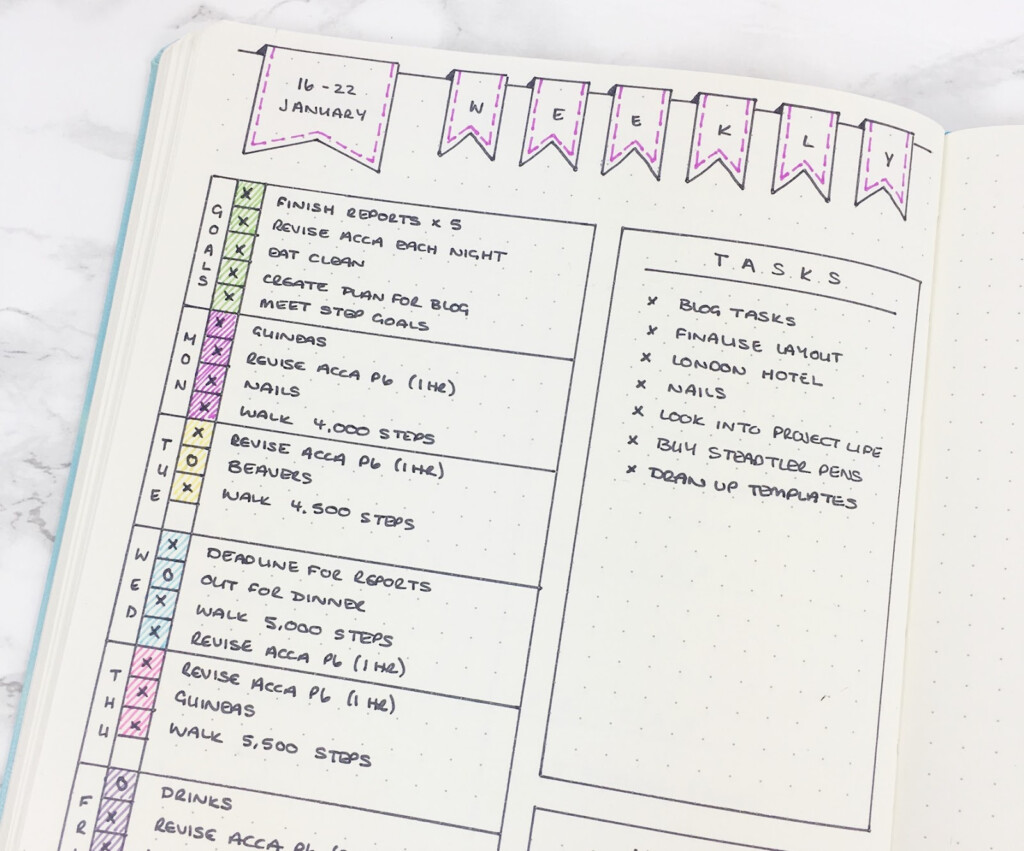 16 - 22
JANUARY
W E E K L Y
GOALS
X FINISH REPORTS x 5
X REVISE ACCA EACH NIGHT
X EAT CLEAN
X CREATE PLAN FOR BLOG
X MEET STEP GOALS
MON
X GUINEAS
X REVISE ACCA P6 (1 HR)
X NAILS
X WALK 4,000 STEPS
TUE
X REVISE ACCA P6 (1 HR)
O BEAVERS
X WALK 4,500 STEPS
WED
X DEADLINE FOR REPORTS
O OUT FOR DINNER
X WALK 5,000 STEPS
X REVISE ACCA P6 (1 HR)
THU
X REVISE ACCA P6 (1 HR)
X GUINEAS
X WALK 5,500 STEPS
FR
O DRINKS
X REVISE ACCA P6
X
TASKS
X BLOG TASKS
X FINALISE LAYOUT
X LONDON HOTEL
X NAILS
X LOOK INTO PROJECT LIFE
X BUY STEADTLER PENS
X DRAW UP TEMPLATES